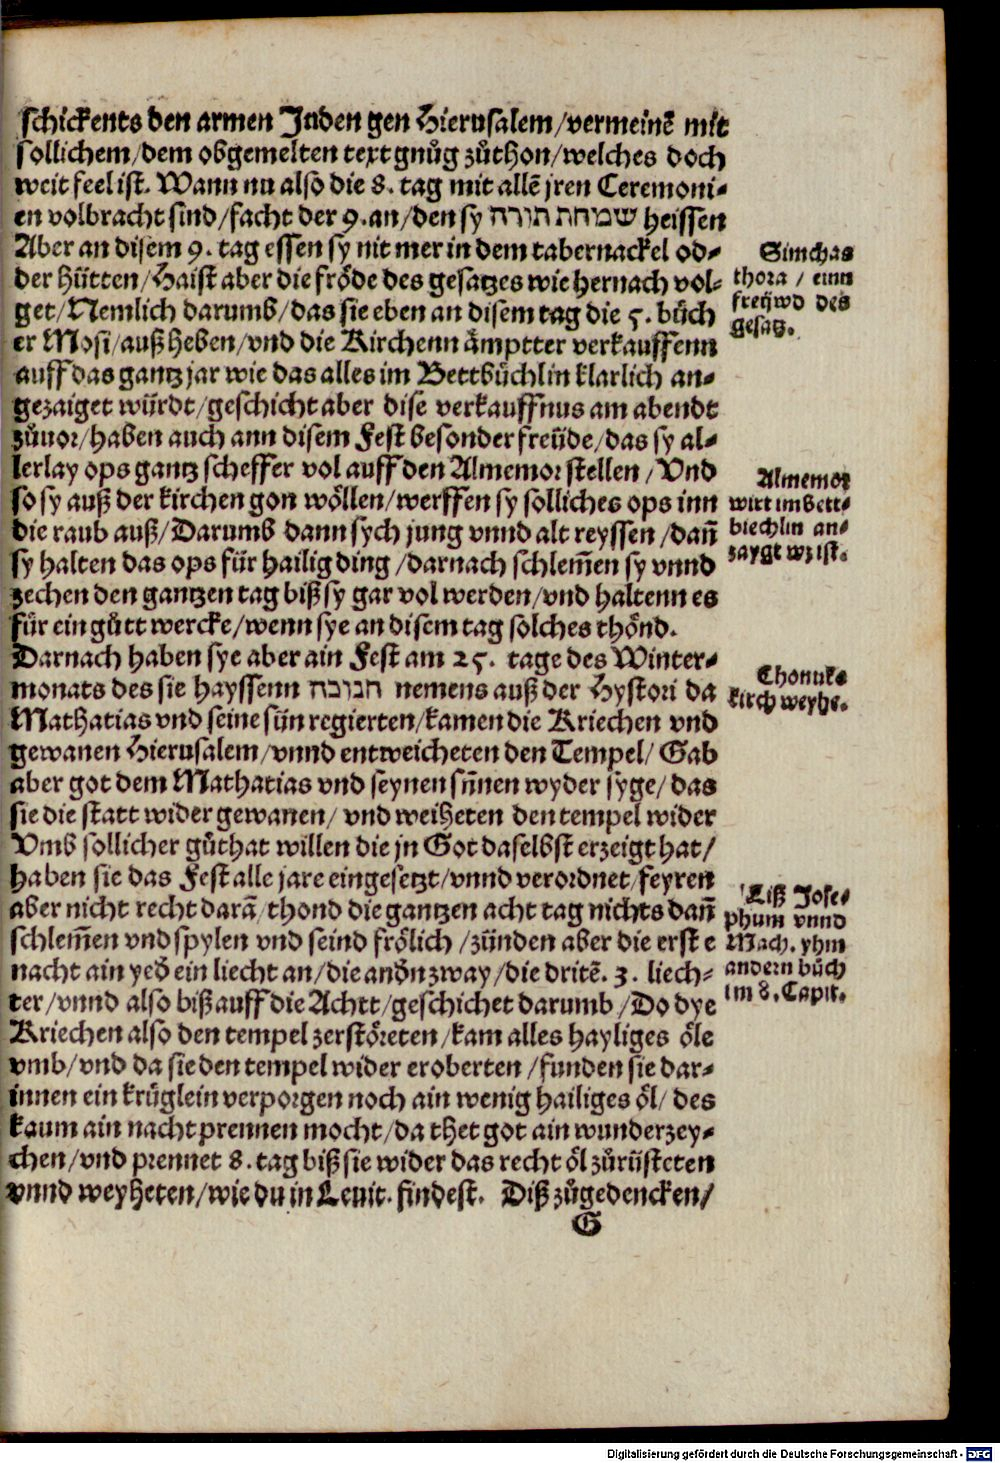 schickents den armen Juden gen Hierusalem/vermeinē mit
sollichem/dem obgemelten text gnůg zůthon/welches doch
weit feel ist. Wann nu also die 8. tag mit allē jren Ceremoni-
en volbracht sind/facht der 9. an/den sy שמחת תורה heissen
Aber an disem 9. tag essen sy nit mer in dem tabernackel od-
der Hütten/Haist aber die fröde des gesatzes wie hernach vol-
get/Nemlich darumb/das sie eben an disem tag die 5. büch
er Mosi/auß heben/vnd die Kirchenn ämptter verkauffenn
auff das gantz jar wie das alles im Bettbüchlin klarlich an-
gezaiget würdt/geschicht aber dise verkauffnus am abendt
zůuor/haben auch ann disem Fest besonder freüde/das sy al-
lerlay ops gantz scheffer vol auff den Almemor stellen/Vnd
so sy auß der kirchen gon wöllen/werffen sy solliches ops inn
die raub auß/Darumb dann sych jung vnnd alt reyssen/dañ
sy halten das ops für hailig ding/darnach schlem̃en sy vnnd
zechen den gantzen tag biß sy gar vol werden/vnd haltenn es
für ein gůtt wercke/wenn sye an disem tag solches thönd.
Darnach haben sye aber ain Fest am 25. tage des Winter-
monats des sie hayssenn חנוכה nemens auß der Hystori da
Mathatias vnd seine sün regierten/kamen die Kriechen vnd
gewanen Hierusalem/vnnd entweicheten den Tempel/Gab
aber got dem Mathatias vnd seynen sünen wyder syge/das
sie die statt wider gewanen/vnd weiheten den tempel wider
Vmb sollicher gůthat willen die jn Got daselbst erzeigt hat/
haben sie das Fest alle jare eingesetzt/vnnd verordnet/feyren
aber nicht recht darā/thond die gantzen acht tag nichts dañ
schlem̃en vnd spylen vnd seind frölich/zünden aber die erste
nacht ain yed ein liecht an/die andn zway/die dritē. 3. liech-
ter/vnnd also biß auff die Achtt/geschichet darumb/Do dye
Kriechen also den tempel zerstöreten/kam alles hayliges öle
vmb/vnd da sie den tempel wider eroberten/funden sie dar-
innen ein krüglein verporgen noch ain wenig hailiges öl/des
kaum ain nacht prennen mocht/da thet got ain wunderzey-
chen/vnd prennet 8. tag biß sie wider das recht öl zůrüsteten
vnnd weyheten/wie du in Leuit. findest. Diß zůgedencken/
G
Simchas
thora/einn
freüwd des
gesatz.
Almemor
wirt im bett-
biechlin an-
zaygt wz ist.
Chonuke
kirch weyhe.
Liß Jose-
phum vnnd
Mach. yhm
andern bůch
im 8. Capit.
Digitalisierung gefördert durch die Deutsche Forschungsgemeinschaft - DFG